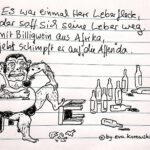 Es war einmal Herr Leberfleck,
der soff sich seine Leber weg
mit Billigwein aus Afrika,
jetzt schimpft er auf die Agenda.
© by eva